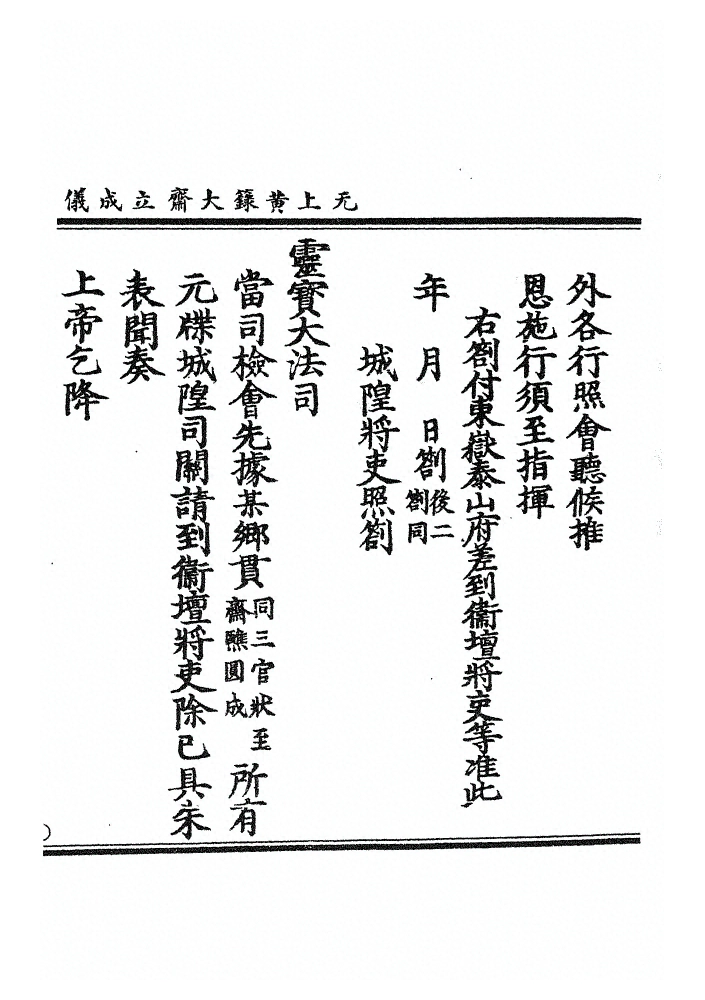 无上黄籙大齋立成儀
外各行照會聽候推
恩施行須至指揮
右劄付東嶽泰山府差到衞壇將吏等准此
年 月 日劄後二劄同
城隍將吏照劄
靈寶大法司
當司檢會先據某鄉貫同三官狀至齋醮圓成所有
元牒城隍司關請到衞壇將吏除已具朱
表聞奏
上帝乞降